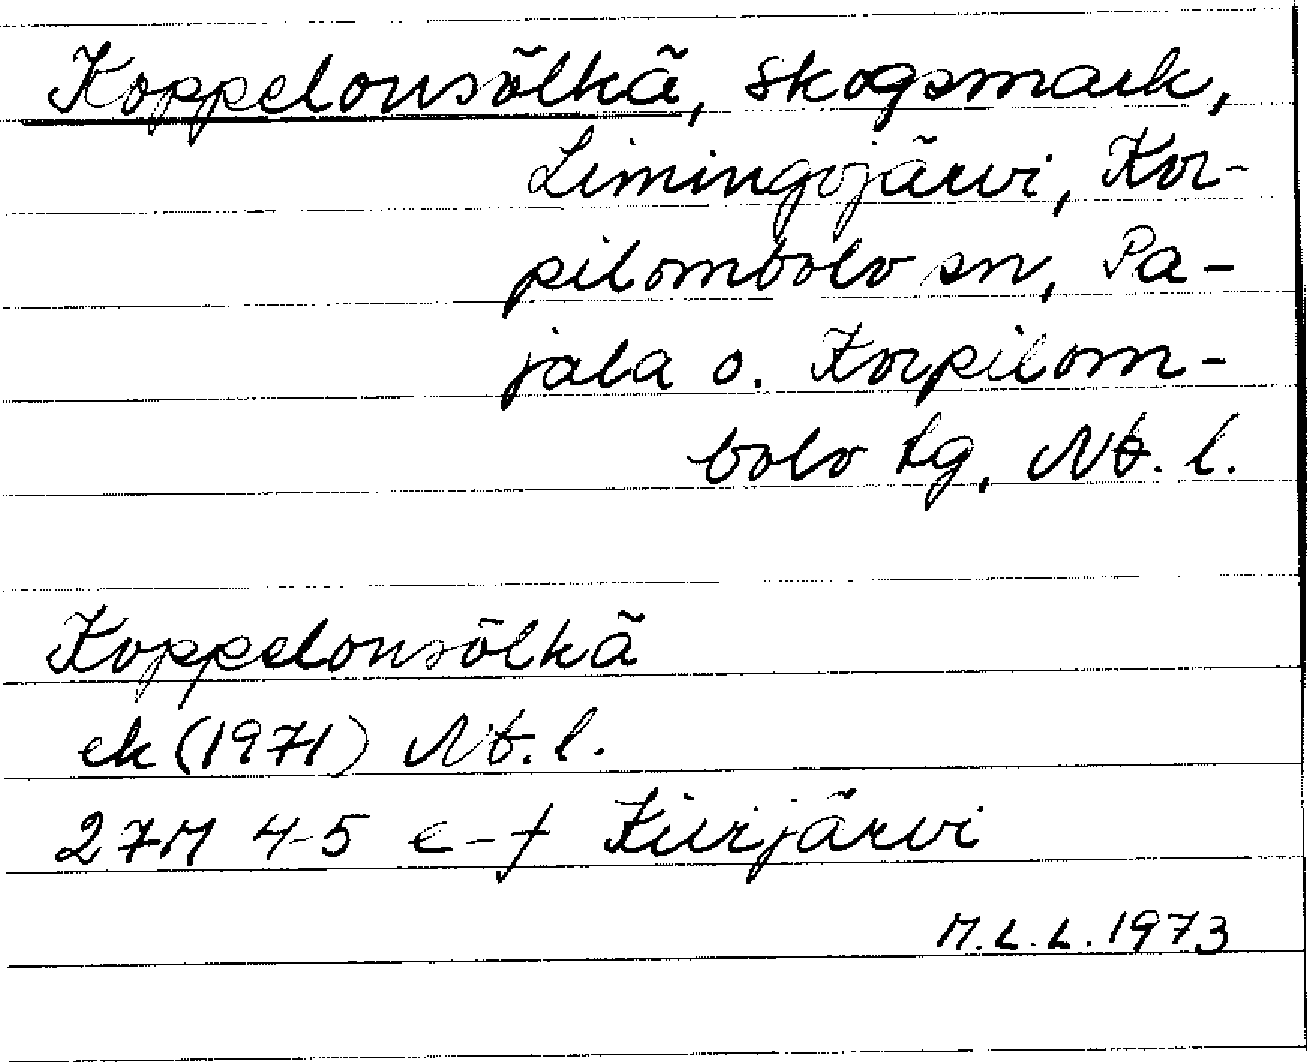 Koppelonsölkä, skogsmark,
Limingojärvi, Kor-
pilombolo sn, Pa-
jala o. Korpilom-
bolo tg, Nb. l.
Koppelonsölkä
ek (1971) Nb. l.
27M 4-5 e-f Kivijärvi
M.L.L. 1973